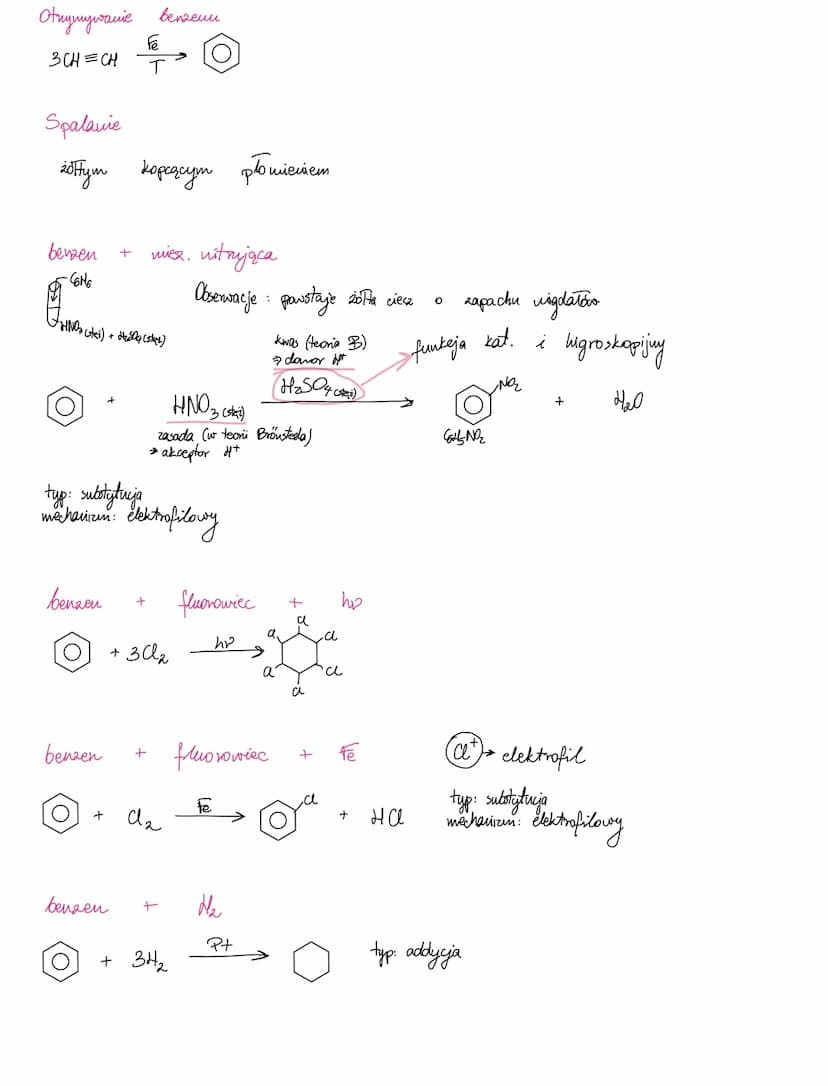 Otrzymywanie benzenu
3CH≡CH Fe T
Spalanie
żółtym kopcącym płomieniem
benzen + miesz. nitrująca
C6H6
HNO3 (stęż) + H2SO4 (stęż)
Obserwacje : powstaje żółta ciecz o zapachu migdałów
kwas (teoria B)
→ donor H+
funkcja kat. i higroskopijny
+ HNO3 (stęż) H2SO4 (stęż) NO2 + H2O
C6H5NO2
zasada (w teorii Brönsteda)
→ akceptor H+
typ: substytucja
mechanizm: elektrofilowy
benzen + fluorowiec + hν
+ 3Cl2 hν → Cl Cl Cl Cl Cl Cl
benzen + fluorowiec + Fe
Cl+ → elektrofil
+ Cl2 Fe → Cl + HCl
typ: substytucja
mechanizm: elektrofilowy
benzen + H2
+ 3H2 Pt →
typ: addycja